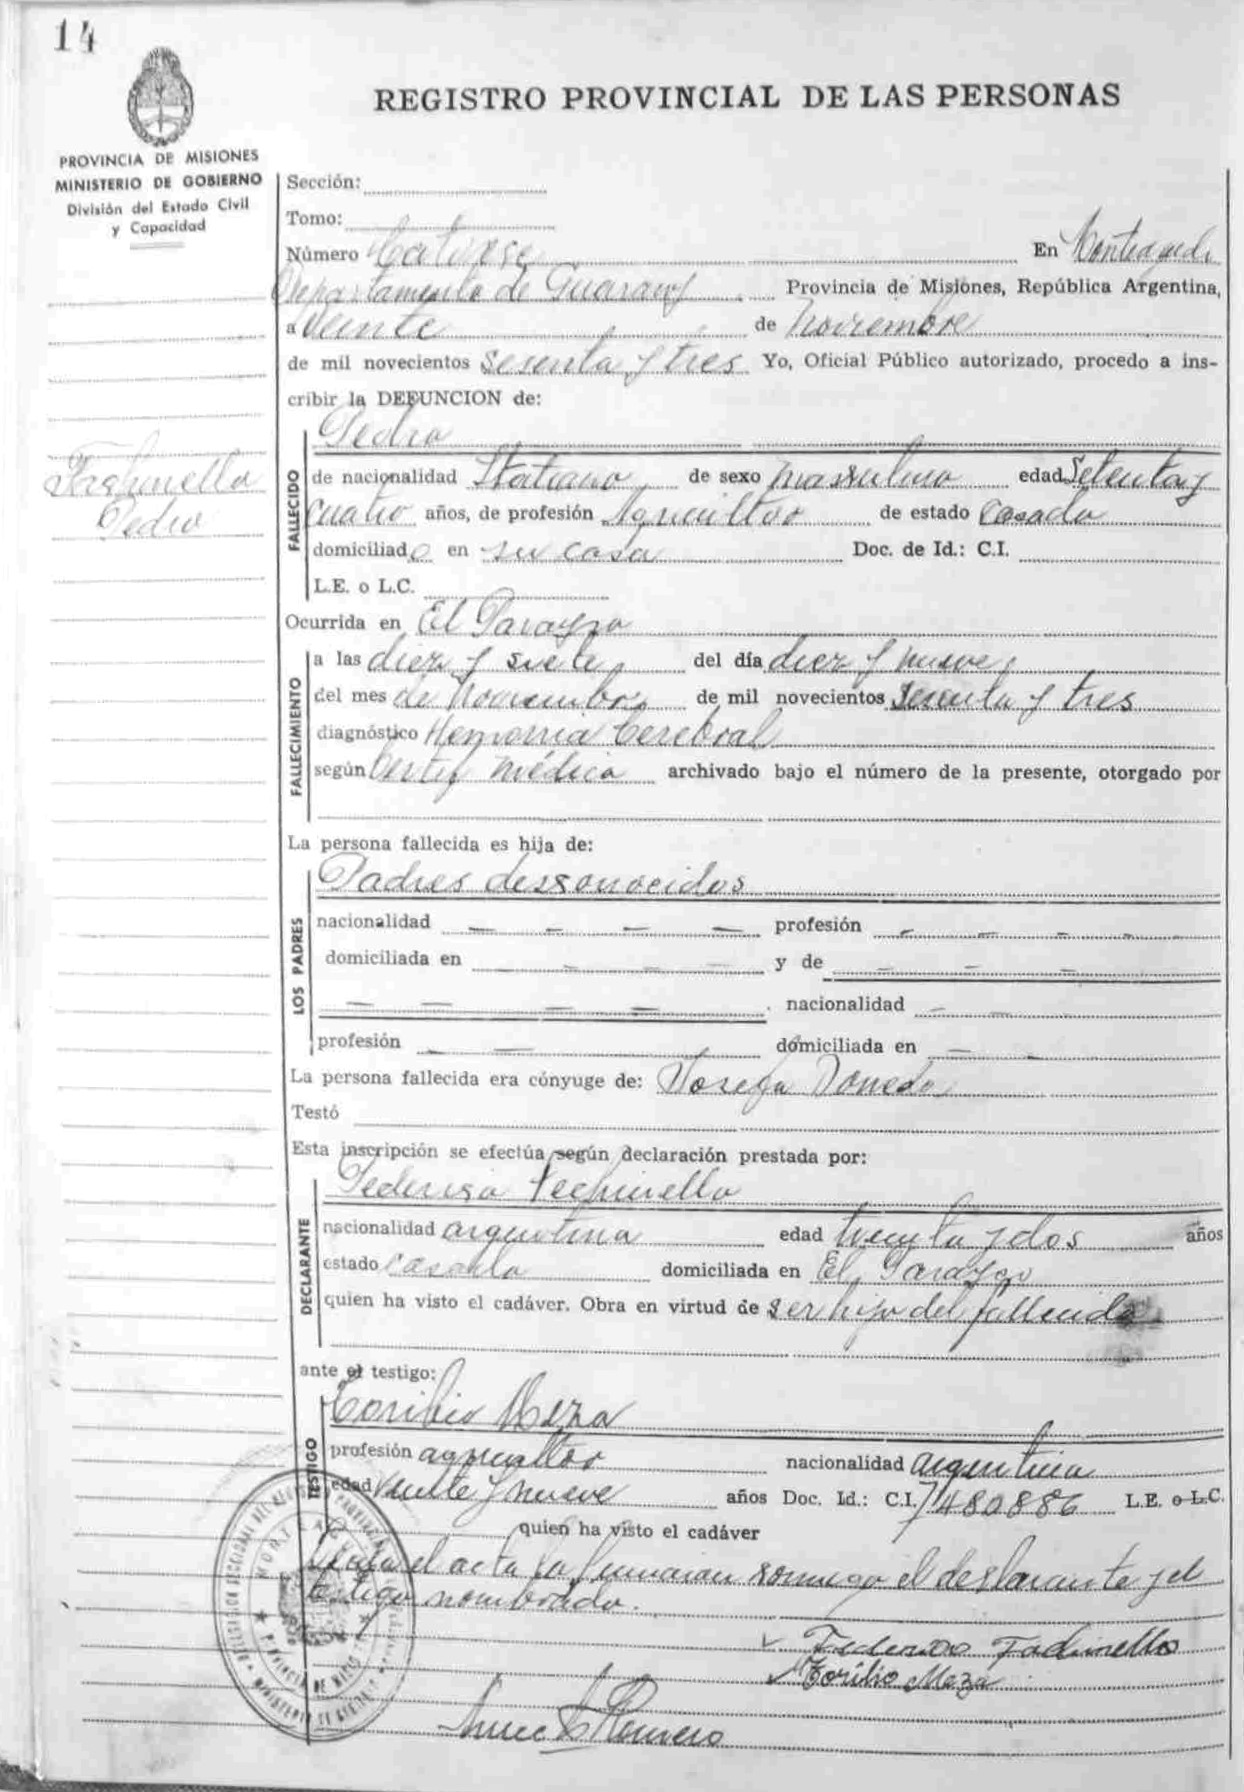 14
REGISTRO PROVINCIAL DE LAS PERSONAS
PROVINCIA DE MISIONES
MINISTERIO DE GOBIERNO
División del Estado Civil
y Capacidad
Sección:
Tomo:
Número Catorse En Monteagudo
Departamento de Guarany Provincia de Misiones, República Argentina,
a Veinte de Noviembre
de mil novecientos Sesenta y tres Yo, Oficial Público autorizado, procedo a ins-
cribir la DEFUNCION de:
Pedro
Pedro
FALLECIDO
de nacionalidad Italiano de sexo masculino edad Setenta y
cuatro años, de profesión Agricultor de estado Casado
domiciliado en su casa Doc. de Id.: C.I.
L.E. o L.C.
Ocurrida en El Parayso
FALLECIMIENTO
a las diez y siete del día diez y nueve
del mes de Noviembre de mil novecientos Sesenta y tres
diagnóstico Cerebral
según Certif médico archivado bajo el número de la presente, otorgado por
La persona fallecida es hija de:
LOS PADRES
Padres desconocidos
nacionalidad — — — — profesión — — — —
domiciliada en — — — y de — — —
— — — — nacionalidad — —
profesión — — domiciliada en — —
La persona fallecida era cónyuge de: Josefa
Testó
Esta inscripción se efectúa según declaración prestada por:
DECLARANTE
Federico
nacionalidad argentina edad treinta y dos años
estado casado domiciliada en El Parayso
quien ha visto el cadáver. Obra en virtud de ser hijo del fallecido
ante el testigo:
TESTIGO
Toribio Meza
profesión agricultor nacionalidad argentina
edad Veinte y nueve años Doc. Id.: C.I. 7480886 L.E. o L.C.
quien ha visto el cadáver
el acta la firmaran conmigo el declarante y el
testigo nombrado.
Federico
Toribio Meza
Romero